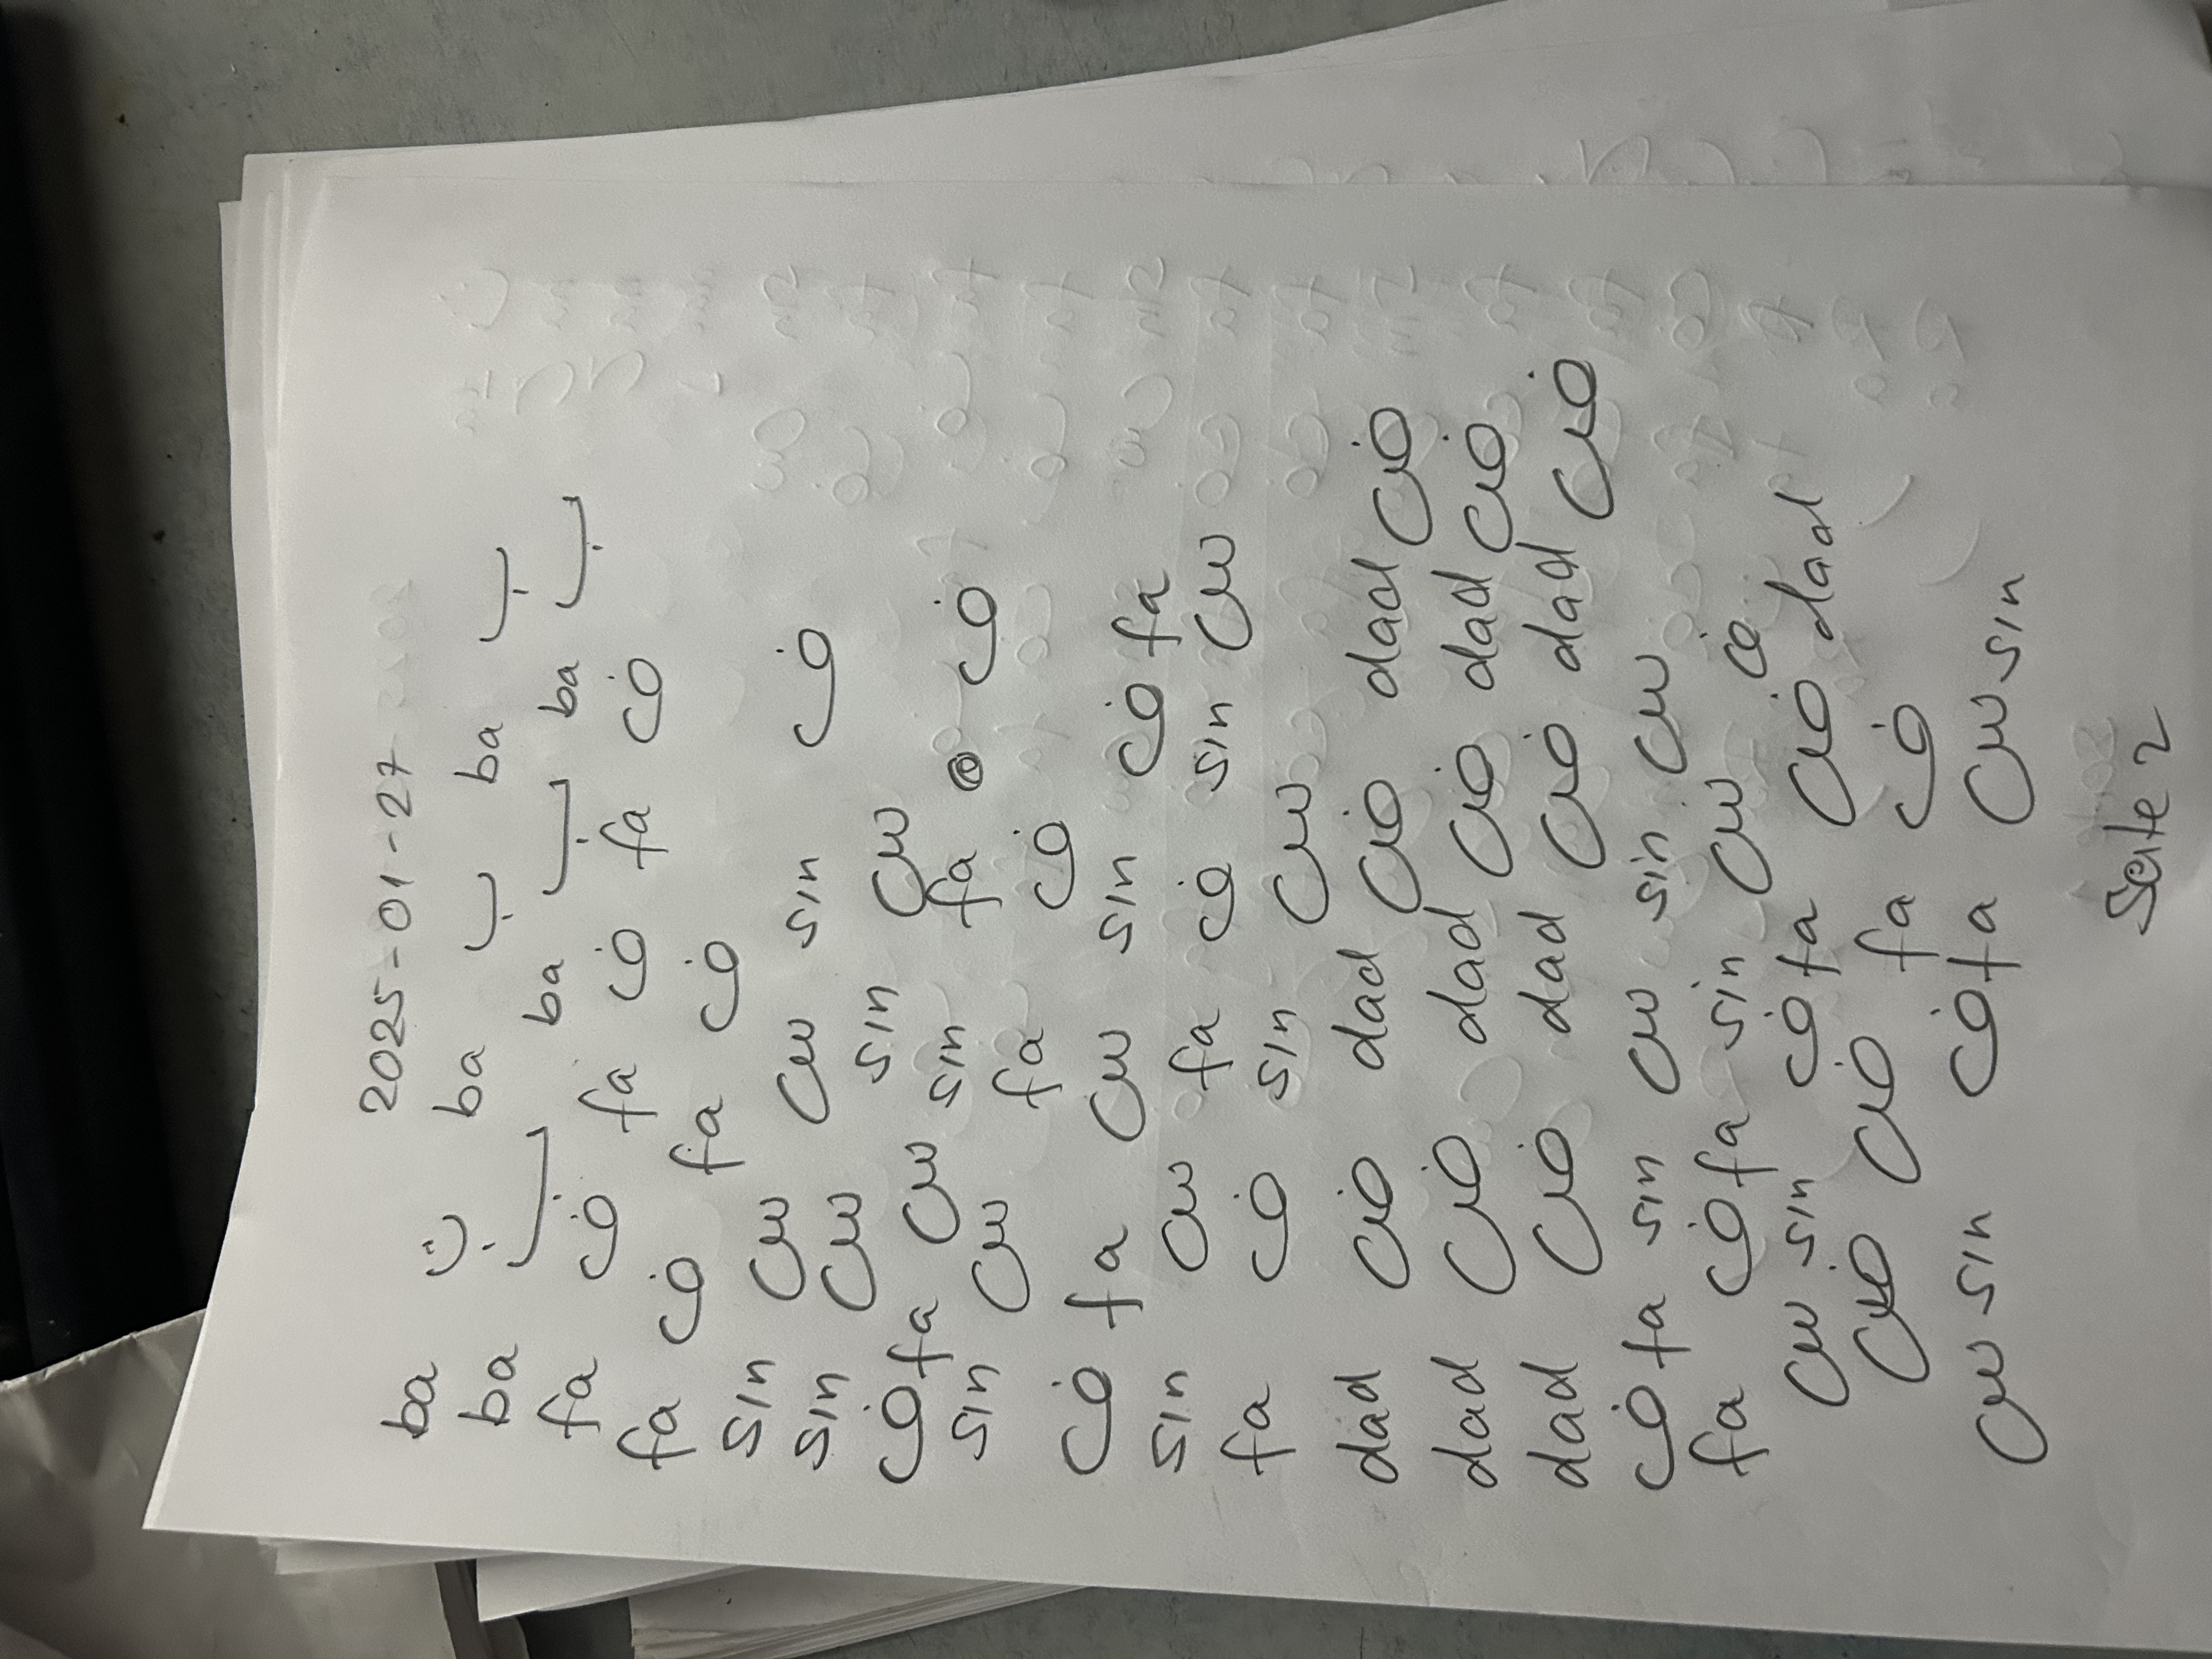 2025-01-27
ba ت ba ب ba ب
ba ب ba ب ba ب
fa ف fa ف fa ف
fa ف fa ف
sin س س sin ف
sin س sin س
ف fa س sin fa ف
sin س fa ف
ف fa س sin ف fa
sin س fa ف sin س
fa ف sin س
dad ض dad ض dad ض
dad ض dad ض dad ض
dad ض dad ض dad ض
ف fa sin س sin س
fa ف fa sin س ف
س sin ف fa ض dad
ض ض fa ف
س sin ف fa س sin
Seite 2